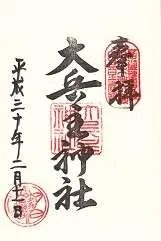 奉拝
大兵主神社
平成三十年二月十一日